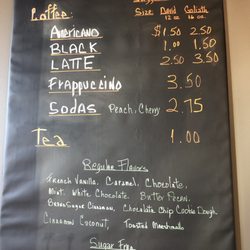 Coffee: Size David Goliath
12 oz 16 oz
AMERICANO $1.50 2.50
BLACK 1.00 1.50
LATTE 2.50 3.50
FRAPPUCCINO 3.50
SODAS Peach, Cherry 2.75
Tea 1.00
Regular Flavors
French Vanilla, Caramel, Chocolate,
Mint, White Chocolate, Butter Pecan,
Brown Sugar Cinnamon, Chocolate Chip Cookie Dough,
Cinnamon Coconut, Toasted Marshmallo
Sugar Free